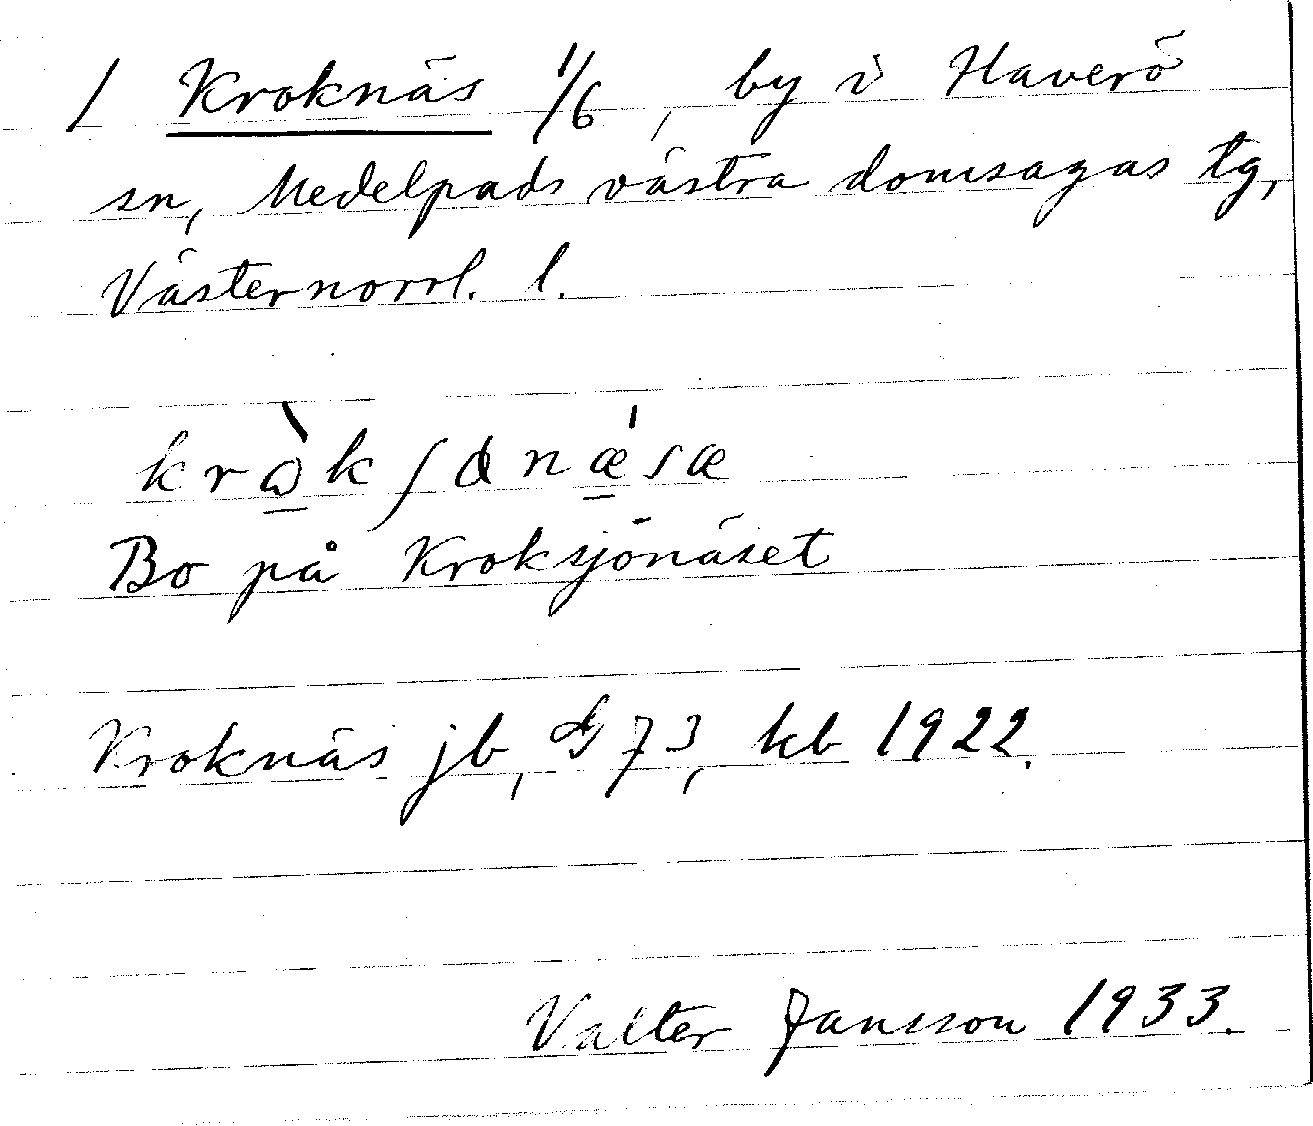 / Kroknäs 1/6, by i Haverö
sn, Medelpads västra domsagas tg,
Västernorrl. l.
Bo på Kroksjönäset
Kroknäs jb, G 73, kb 1922.
Valter Jansson 1933.